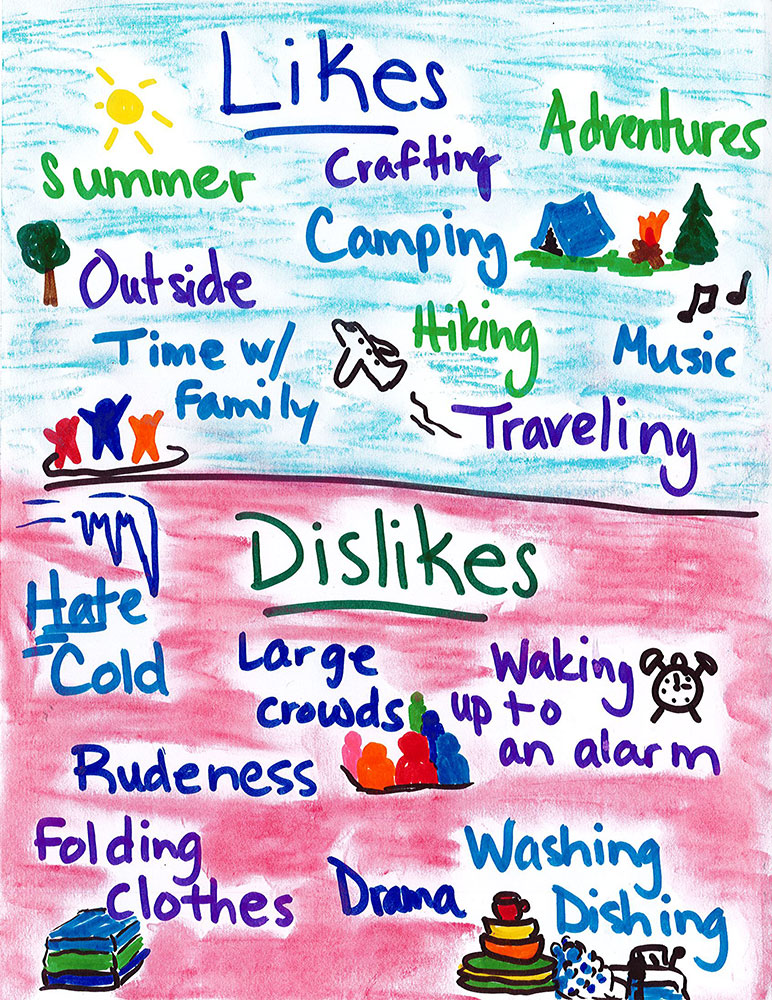 Likes
Adventures
Summer
Crafting
Camping
Outside
Hiking
Music
Time w/
Family
Traveling
Dislikes
Hate
Cold
Large
crowds
Waking
up to
an alarm
Rudeness
Folding
Clothes
Drama
Washing
Dishing